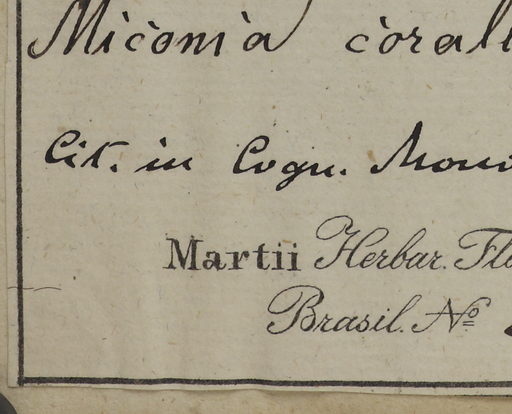 Miconia corall
Cit. in Cogn. Mono
Martii Herbar. Flo
Brasil. No